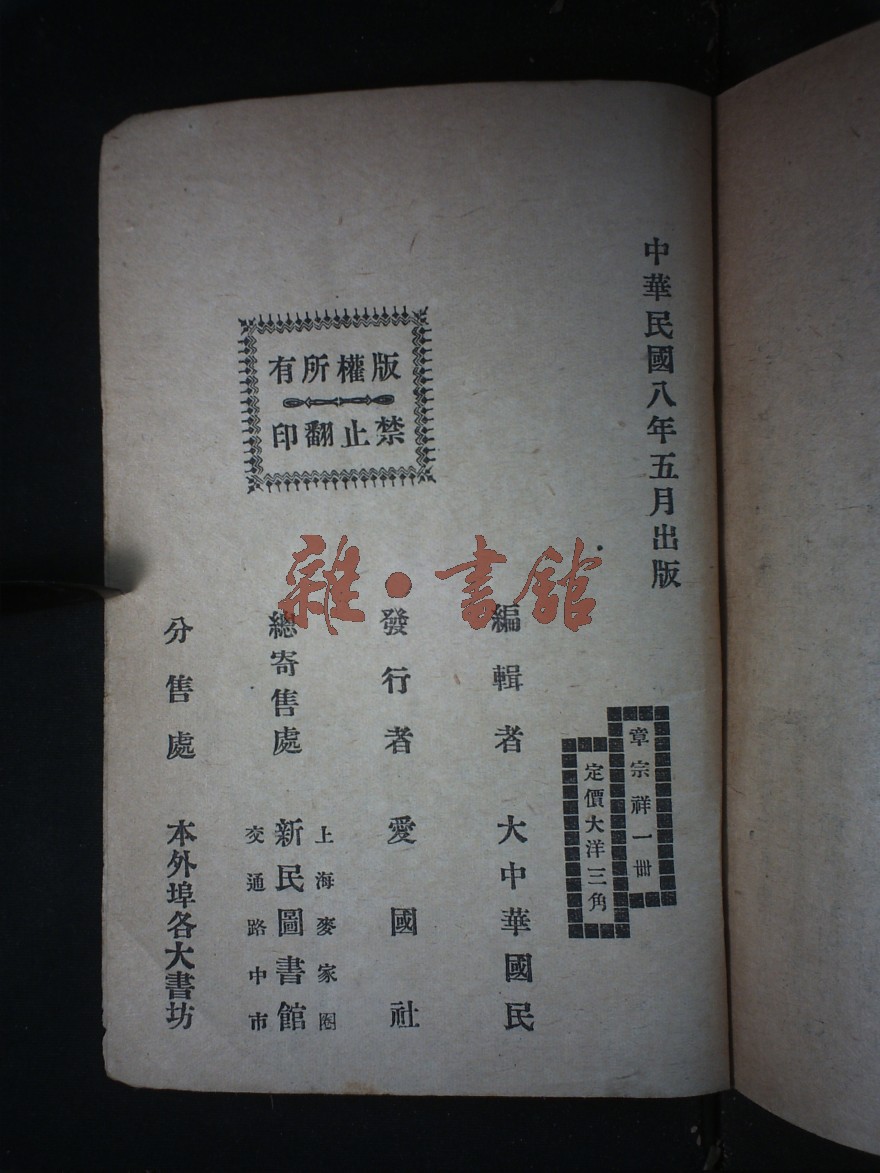 中華民國八年五月出版
章宗祥一冊
定價大洋三角
編輯者 大中華國民
發行者 愛國社
總寄售處
上海麥家圈
新民圖書館
交通路中市
分售處 本外埠各大書坊
版權所有
禁止翻印
雜·書館